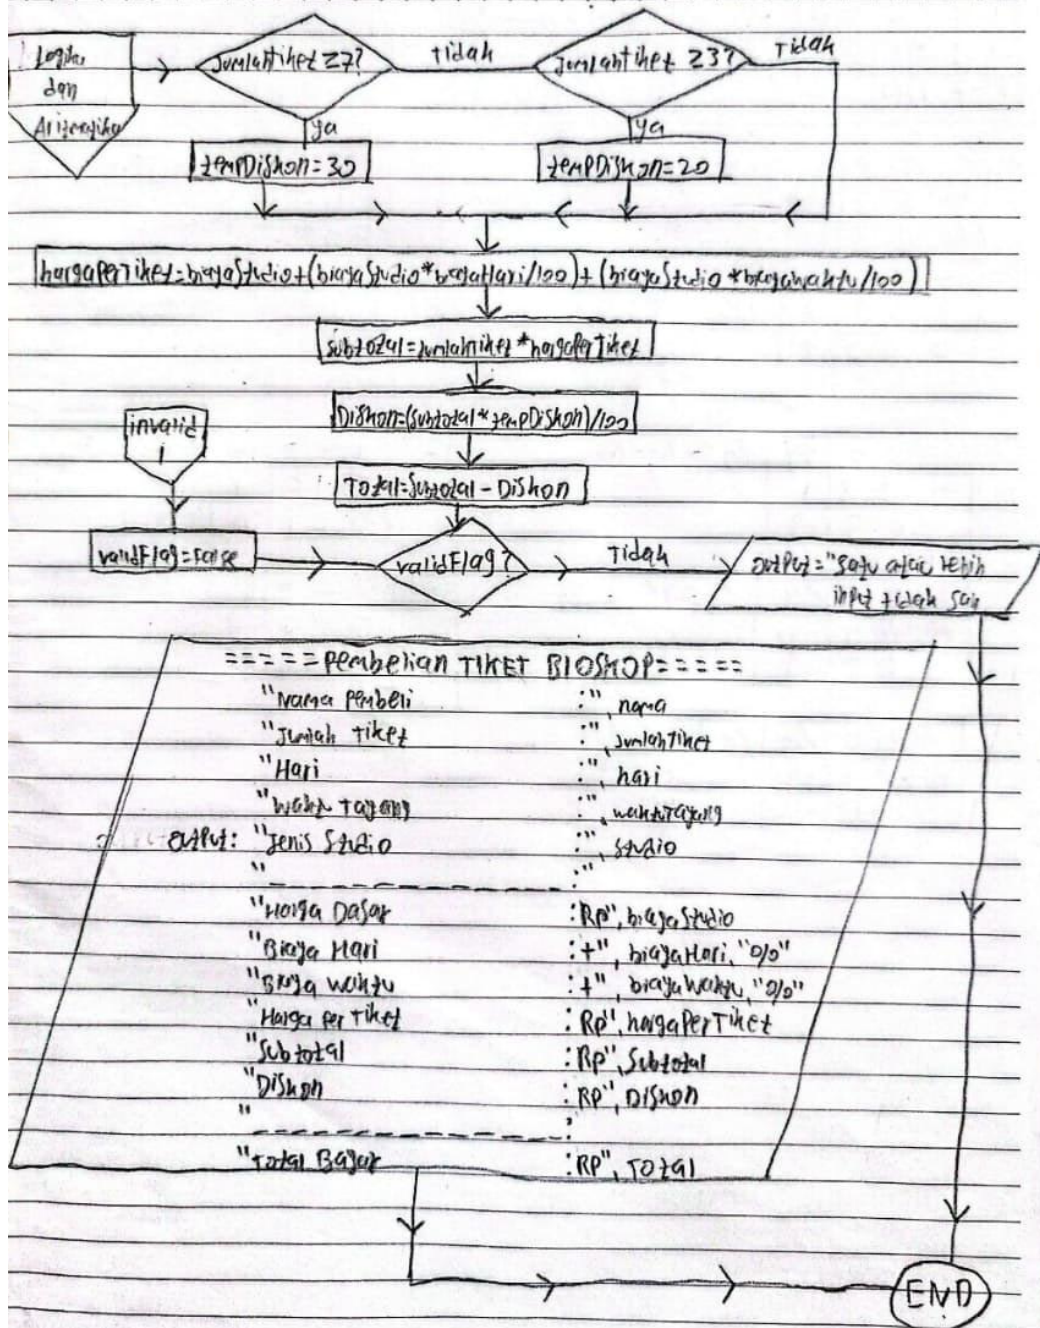 Logika
dan
Aritmatika
JumlahTiket ≥7?
Tidak
JumlahTiket ≥3?
Tidak
ya
ya
tempDiskon=30
tempDiskon=20
hargaPerTiket=biayaStudio+(biayaStudio*biayaHari/100)+(biayaStudio*biayaWaktu/100)
Subtotal=JumlahTiket*hargaPerTiket
Diskon=(Subtotal*tempDiskon)/100
invalid
Total=Subtotal-Diskon
validFlag=False
validFlag?
Tidak
output="Satu atau lebih
input tidak
=====Pembelian TIKET BIOSKOP=====
"Nama Pembeli :", nama
"Jumlah Tiket :", JumlahTiket
"Hari :", hari
"Waktu Tayang :", waktuTayang
output: "Jenis Studio :", Studio
" :"
"--------------------:
"Harga Dasar :Rp", biayaStudio
"Biaya Hari :+", biayaHari, "%"
"Biaya Waktu :+", biayaWaktu, "%"
"Harga Per Tiket :Rp", hargaPerTiket
"Subtotal :Rp", Subtotal
"Diskon :Rp", Diskon
"--------------------:
"Total Bayar :Rp", Total
END